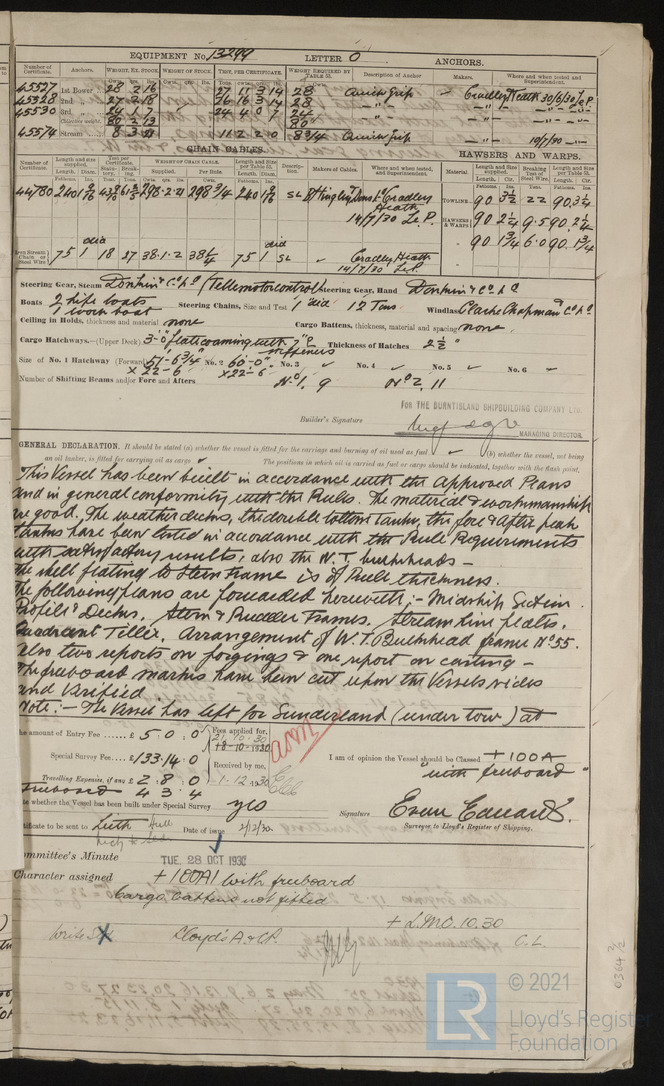 EQUIPMENT No. 13299 LETTER O ANCHORS.
Number of Certificate. Anchors. WEIGHT, EX. STOCK. WEIGHT OF STOCK. TEST, PER CERTIFICATE. WEIGHT REQUIRED BY TABLE 53. Description of Anchor Makers. Where and when tested and Superintendent.
45527 1st Bower 28 2 16 27 11 3 14 28 Quick Grip Cradley Heath 30/6/30 L.P.
45528 2nd " 27 2 18 26 16 3 14 28 " " "
45530 3rd "
Collective weight 80 2 13
45574 Stream 11 2 2 0 8 3/4 Quick Grip 10/7/30
CHAIN CABLES. HAWSERS AND WARPS.
Number of Certificate. Length and size supplied. Test per Certificate. WEIGHT OF CHAIN CABLE. Length and size per Table 53. Description. Makers of Cables. Where and when tested, and Superintendent. Material Length and Size supplied. Breaking Test of Steel Wire. Length and Size per Table 53.
44780 240 1 9/16 298.2.21 298 3/4 240 1 9/16 SL Cradley Heath TOWLINE 90 3 1/2 22 90 3 1/4
14/7/30 L.P. HAWSERS & WARPS 90 2 1/4 9.5 90 2 1/4
90 1 3/4 6.0 90 1 3/4
75 1 18 27 38.1.2 38 1/4 75 1 SL " Cradley Heath
14/7/30 L.P.
Steering Gear, Steam Donkin & Co Ld (Telemotor control) Steering Gear, Hand Donkin & Co Ld
Boats 2 life boats Steering Chains, Size and Test 1" dia 12 Tons Windlass Clarke Chapman & Co Ld
1 work boat
Ceiling in Holds, thickness and material none Cargo Battens, thickness, material and spacing none.
Cargo Hatchways.—(Upper Deck) 3'-0" flat coaming with 7" stiffeners Thickness of Hatches 2 1/2"
Size of No. 1 Hatchway (Forward) 51'-6 3/4" x 22'-6" No. 2 60'-0" x 22'-6" No. 3 No. 4 No. 5 No. 6
Number of Shifting Beams and/or Fore and Afters No 1. 9 No 2. 11
FOR THE BURNTISLAND SHIPBUILDING COMPANY LTD.
Builder's Signature
MANAGING DIRECTOR.
GENERAL DECLARATION. It should be stated (a) whether the vessel is fitted for the carriage and burning of oil used as fuel (b) whether the vessel, not being
an oil tanker, is fitted for carrying oil as cargo The positions in which oil is carried as fuel or cargo should be indicated, together with the flash point.
This Vessel has been built in accordance with the Approved Plans
and in general conformity with the Rules. The material & workmanship
are good. The weather decks, the double bottom tanks, the fore & after peak
tanks have been tested in accordance with the Rule Requirements
with satisfactory results, also the W.T. bulkheads —
The shell plating to Stern Frame is of Rule thickness.
The following plans are forwarded herewith:— Midship Section.
Profile & Decks. Stern & Rudder Frames. Streamline plates.
Quadrant Tiller. Arrangement of W.T. Bulkhead frame No 55.
also two reports on forgings & one report on casting —
The freeboard marks have been cut upon the Vessels sides
and Verified
Note:— The Vessel has left for Sunderland (under tow) at
The amount of Entry Fee £ 5 0 0 Fees applied for, 21.10.30
18-10-1930
Special Survey Fee £133.14.0 Received by me, I am of opinion the Vessel should be Classed +100A
Travelling Expenses, if any £ 2.8.0 1.12.1930 "with freeboard"
Freeboard 4 3 4
State whether the Vessel has been built under Special Survey yes Signature Evan Edwards.
Surveyor to Lloyd's Register of Shipping.
Certificate to be sent to Leith Hull Date of issue 2/12/30
Committee's Minute TUE. 28 OCT 1930
Character assigned +100A1 with freeboard
Cargo battens not fitted
+ L.M.C. 10.30
Write Lloyd's A. & C.P. C.L.
0364 2/2
© 2021
LR
Lloyd's Register
Foundation